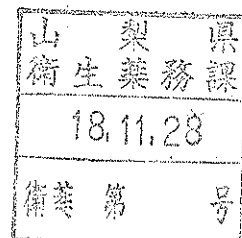 山梨県
衛生薬務課
18.11.28
衛薬第 号